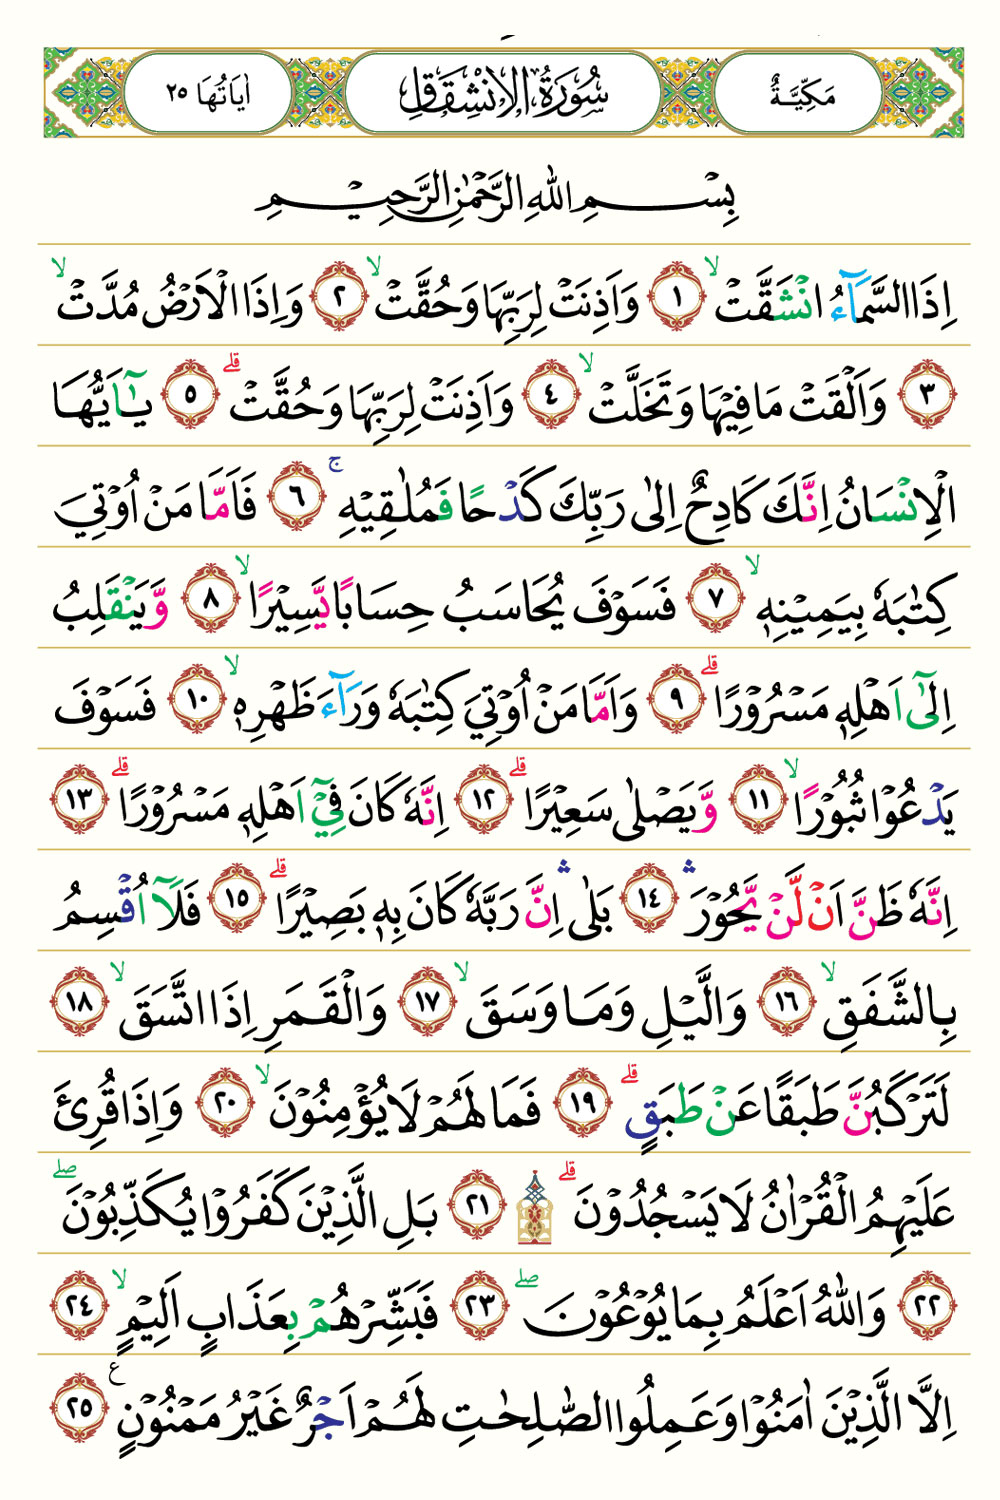 مَكِّيَّةٌ سُورَةُ الْاِنْشِقَاقِ اٰيَاتُهَا ٢٥
بِسْمِ اللهِ الرَّحْمٰنِ الرَّحِيْمِ
اِذَا السَّمَآءُ انْشَقَّتْ ۙ ١ وَاَذِنَتْ لِرَبِّهَا وَحُقَّتْ ۙ ٢ وَاِذَا الْاَرْضُ مُدَّتْ ۙ
٣ وَاَلْقَتْ مَا فِيْهَا وَتَخَلَّتْ ۙ ٤ وَاَذِنَتْ لِرَبِّهَا وَحُقَّتْ ۗ ٥ يٰٓاَيُّهَا
الْاِنْسَانُ اِنَّكَ كَادِحٌ اِلٰى رَبِّكَ كَدْحًا فَمُلٰقِيْهِ ۚ ٦ فَاَمَّا مَنْ اُوْتِيَ
كِتٰبَهٗ بِيَمِيْنِهٖ ۙ ٧ فَسَوْفَ يُحَاسَبُ حِسَابًا يَّسِيْرًا ۙ ٨ وَّيَنْقَلِبُ
اِلٰٓى اَهْلِهٖ مَسْرُوْرًا ۗ ٩ وَاَمَّا مَنْ اُوْتِيَ كِتٰبَهٗ وَرَآءَ ظَهْرِهٖ ۙ ١٠ فَسَوْفَ
يَدْعُوْا ثُبُوْرًا ۙ ١١ وَّيَصْلٰى سَعِيْرًا ۗ ١٢ اِنَّهٗ كَانَ فِيْٓ اَهْلِهٖ مَسْرُوْرًا ۗ ١٣
اِنَّهٗ ظَنَّ اَنْ لَّنْ يَّحُوْرَ ۛ ١٤ بَلٰى ۛ اِنَّ رَبَّهٗ كَانَ بِهٖ بَصِيْرًا ۗ ١٥ فَلَآ اُقْسِمُ
بِالشَّفَقِ ۙ ١٦ وَالَّيْلِ وَمَا وَسَقَ ۙ ١٧ وَالْقَمَرِ اِذَا اتَّسَقَ ۙ ١٨
لَتَرْكَبُنَّ طَبَقًا عَنْ طَبَقٍ ۗ ١٩ فَمَا لَهُمْ لَا يُؤْمِنُوْنَ ۙ ٢٠ وَاِذَا قُرِئَ
عَلَيْهِمُ الْقُرْاٰنُ لَا يَسْجُدُوْنَ ۗ ۩ ٢١ بَلِ الَّذِيْنَ كَفَرُوْا يُكَذِّبُوْنَ ۖ
٢٢ وَاللهُ اَعْلَمُ بِمَا يُوْعُوْنَ ۖ ٢٣ فَبَشِّرْهُمْ بِعَذَابٍ اَلِيْمٍ ۙ ٢٤
اِلَّا الَّذِيْنَ اٰمَنُوْا وَعَمِلُوا الصّٰلِحٰتِ لَهُمْ اَجْرٌ غَيْرُ مَمْنُوْنٍ ع ٢٥